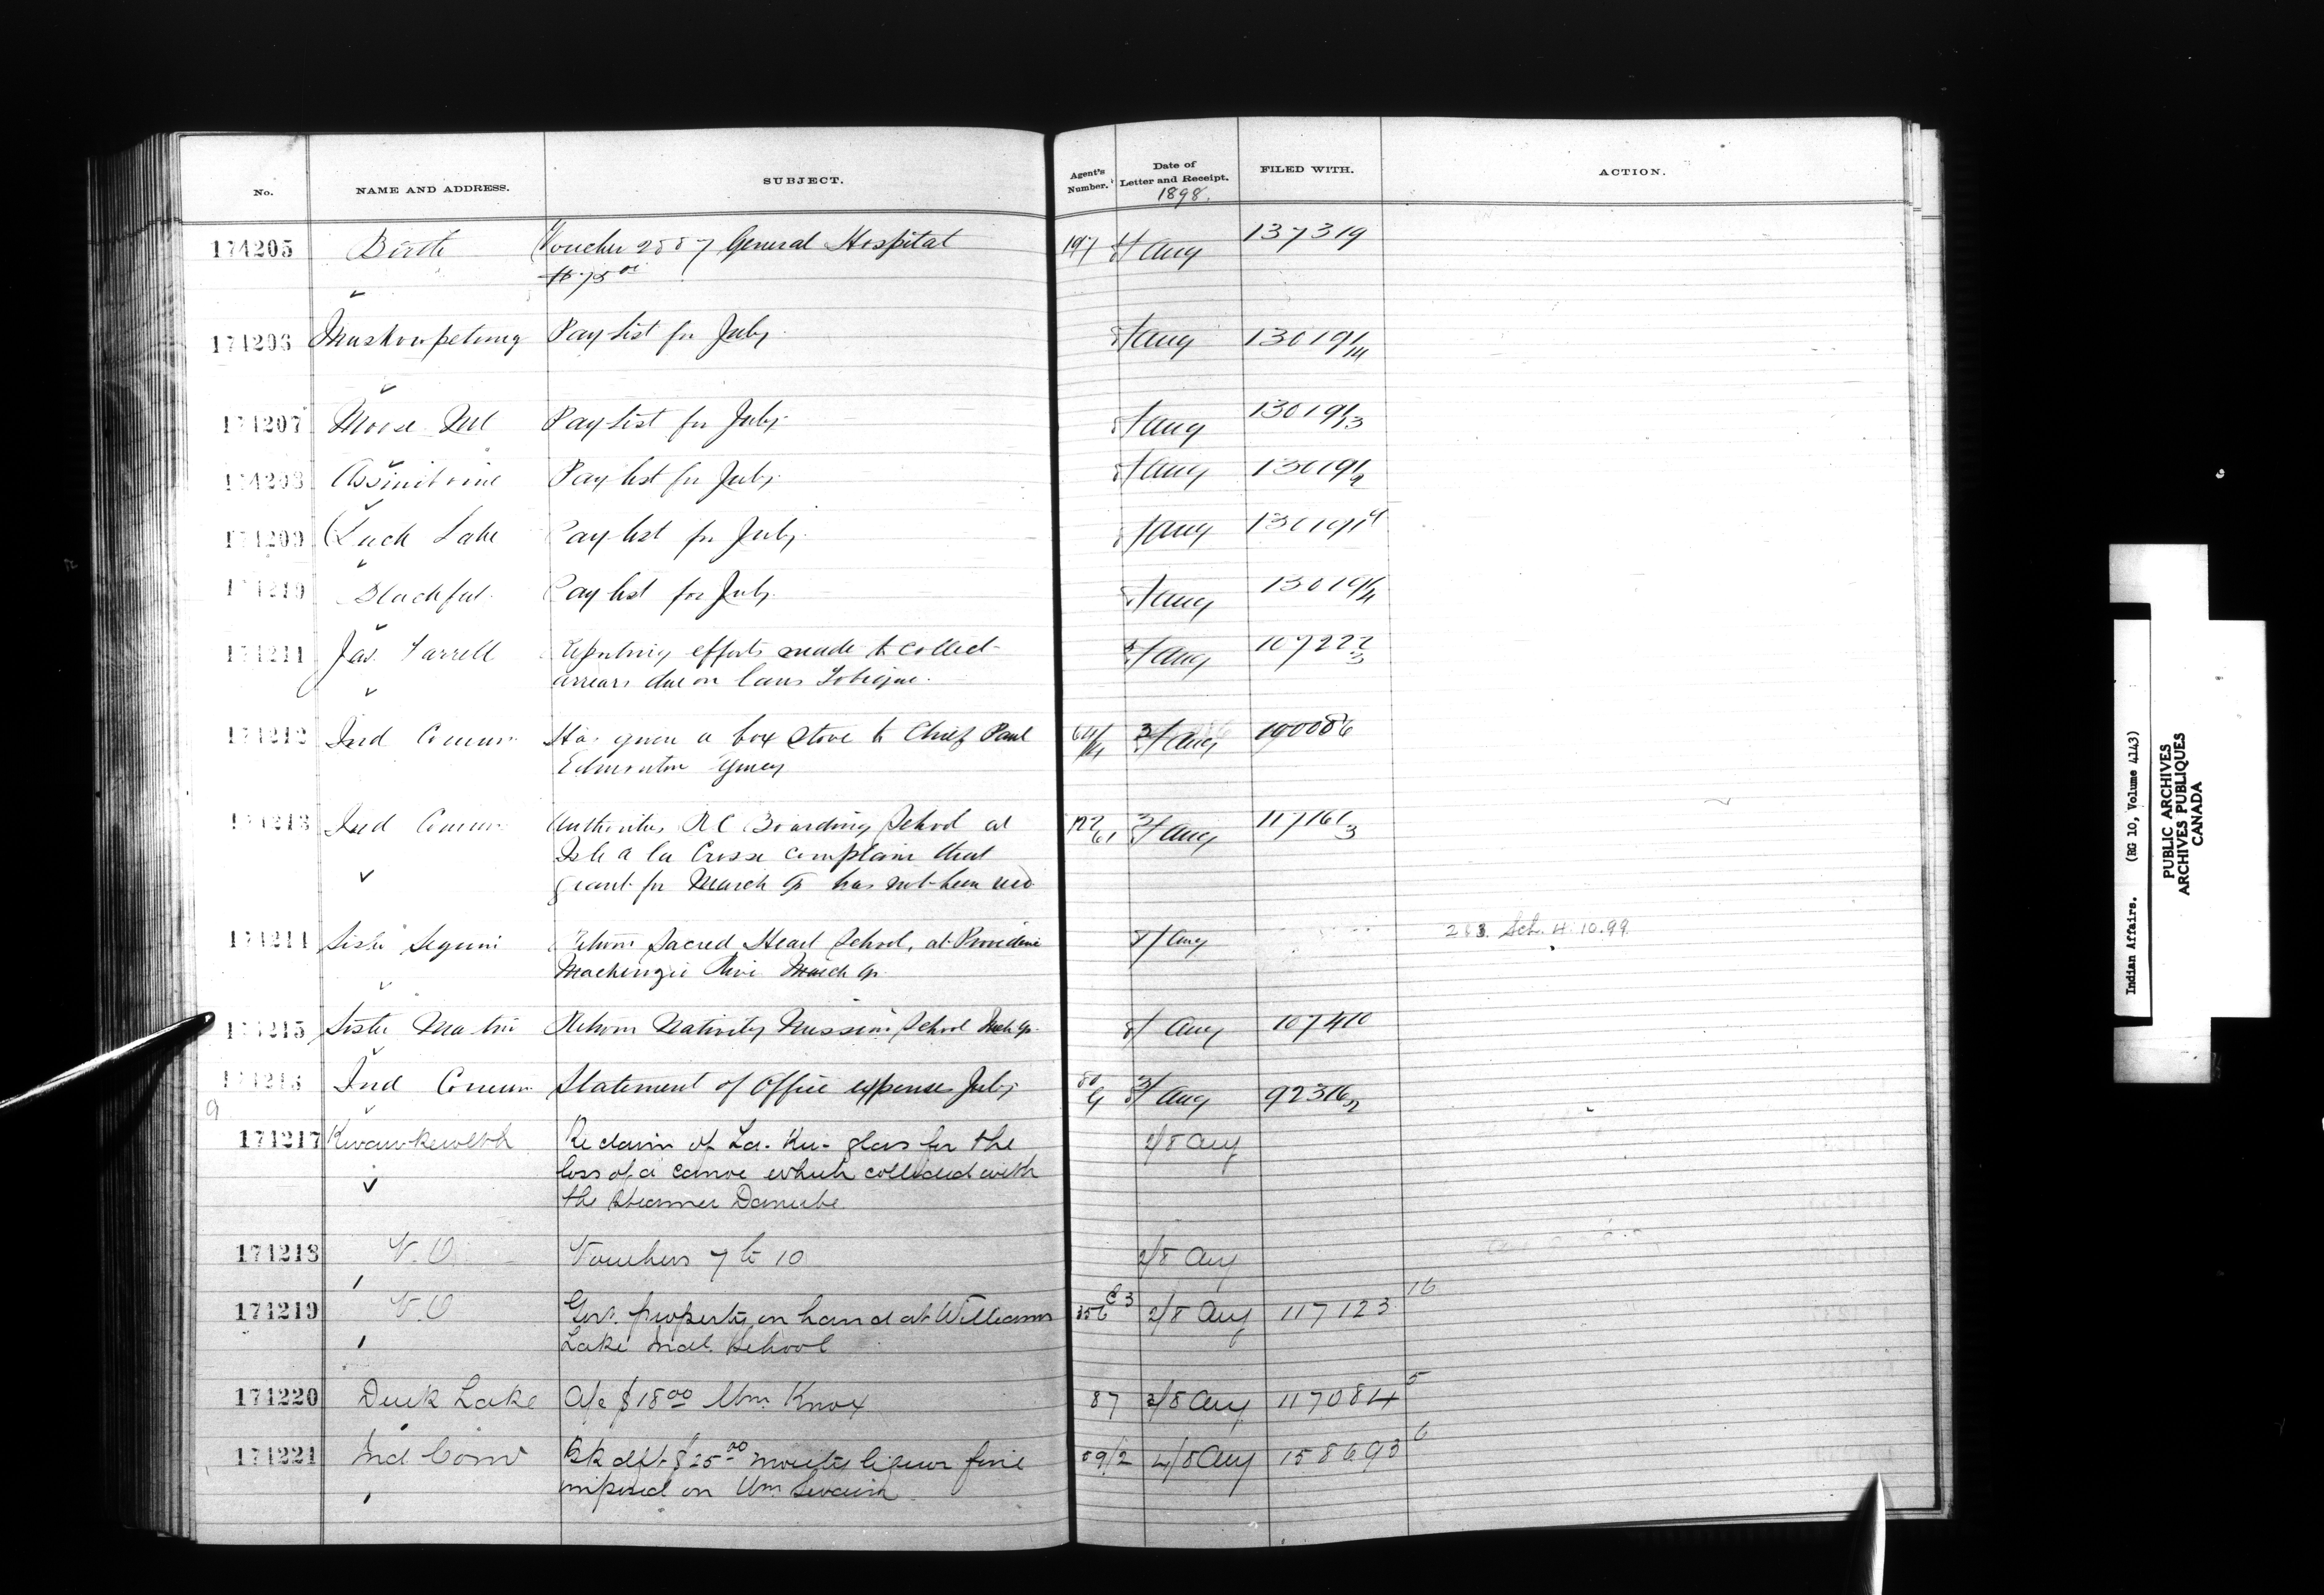 No. NAME AND ADDRESS. SUBJECT. Agent's Number. Date of Letter and Receipt. 1898. FILED WITH. ACTION.
174205 Birtle Voucher 2887 General Hospital 197 Aug 137319
174206 Muskowpetung Pay list for July Aug 130191/111
174207 Moose Mt Pay list for July Aug 130191/13
Assiniboine Pay list for July Aug 130191/2
174209 Duck Lake Pay list for July Aug
Blackfoot Pay list for July Aug
174211 Jas. Farrell Reporting efforts made to collect Aug 107222/3
arrears due on loans Tobique.
174212 Ind Commr Has given a box stove to Chief Paul 3/ Aug 190086
Edmonton Agency
174213 Ind Commr Authorities RC Boarding School at 3/ Aug 117161/3
Isle a la Crosse complain that
grant for March qr has not been recd
174214 Sister Seguin Return Sacred Heart School, at Providence 8/ Aug Sch. 4.10.99
Mackenzie River March qr.
174215 Sister Return Nativity Mission School Mch qr. 8/ Aug 107410
Ind Commr Statement of Office expenses July 3/ Aug 92316
174217 Kwawkewlth Re claim of La-Ku-glas for the 2/8 Aug
loss of a canoe which collided with
the Steamer Danube
174218 V.O. Vouchers 7 to 10 2/8 Aug
174219 V.O Govt. property on hand at Williams 356 C3 2/8 Aug 117123 16
Lake Indl. School
174220 Duck Lake A/c $18.00 Wm. Knox 87 3/8 Aug 117084 5
174221 Ind Comr Bk dft $25.00 moiety liquor fine 59/2 4/8 Aug 158693 6
imposed on Wm Swain
Indian Affairs. (RG 10, Volume 4143)
PUBLIC ARCHIVES
ARCHIVES PUBLIQUES
CANADA